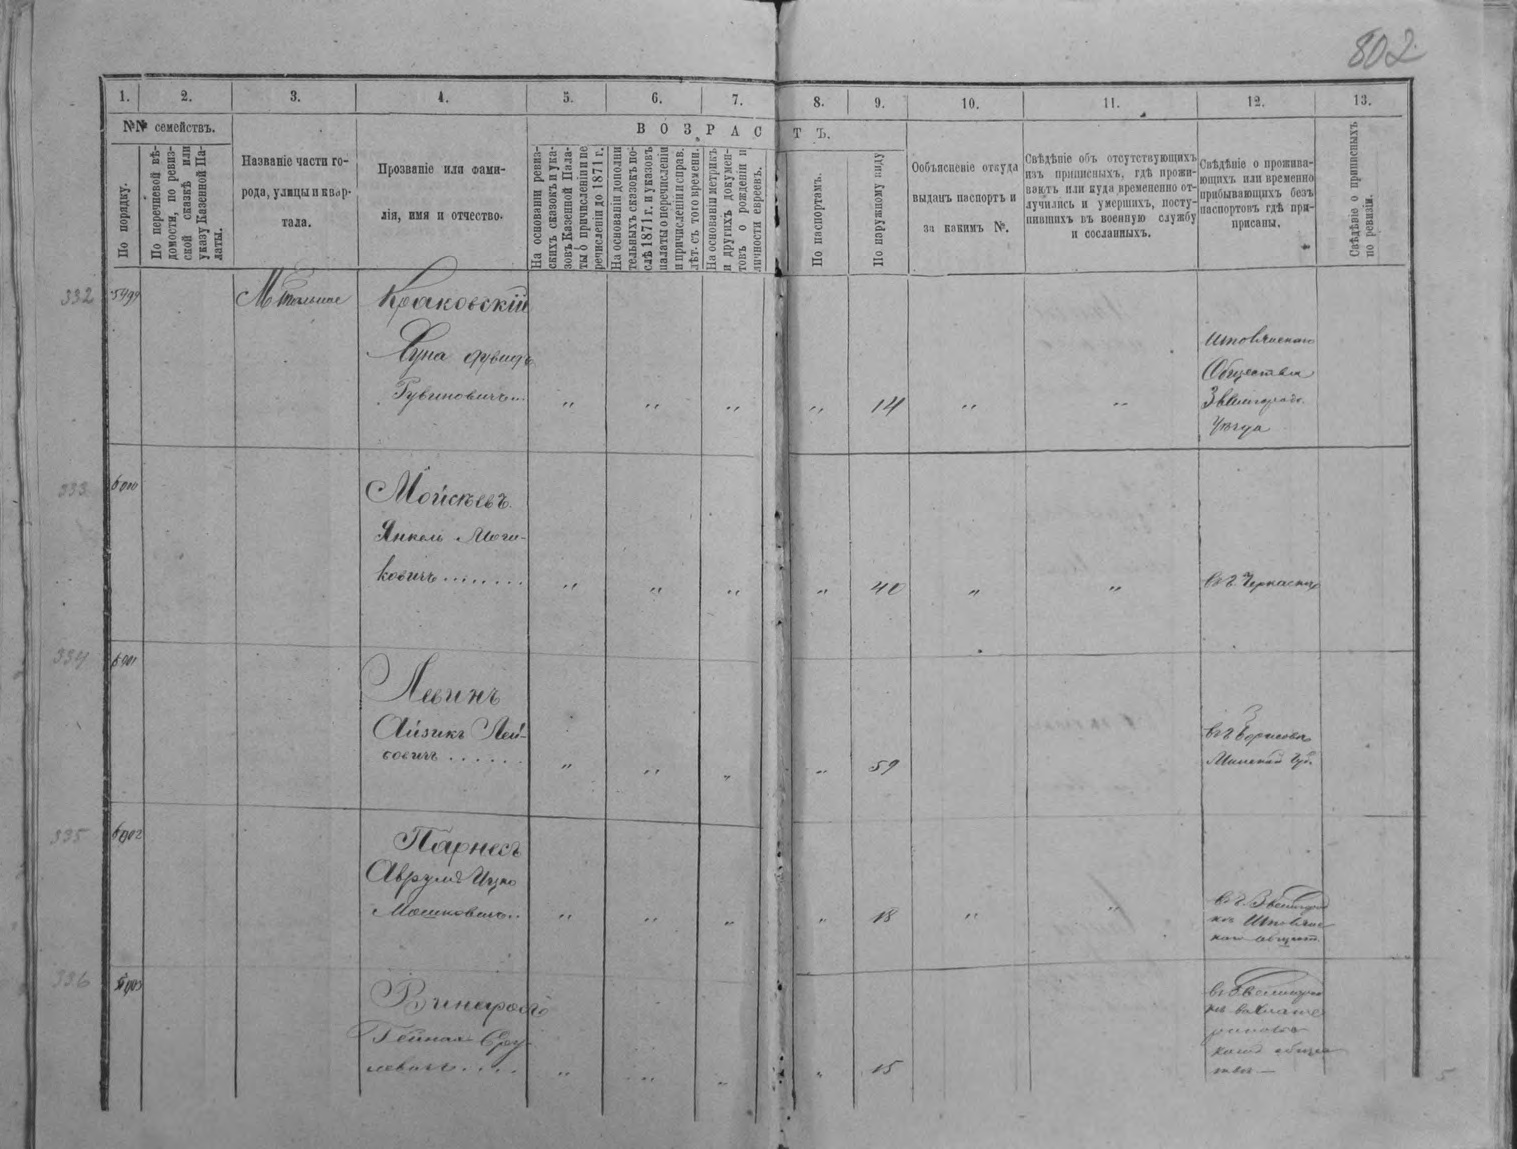 802
1. 2. 3. 4. 5. 6. 7. 8. 9. 10. 11. 12. 13.
№№ семействъ.
ВОЗРАСТЪ.
По порядку.
По перечневой вѣ-
домости, по ревиз-
ской сказкѣ или
указу Казенной Па-
латы.
Названіе части го-
рода, улицы и квар-
тала.
Прозваніе или фами-
лія, имя и отчество.
На основаніи ревиз-
скихъ сказокъ и ука-
зовъ Казенной Пала-
ты о причисленіи и пе
речисленіи до 1871 г.
На основаніи дополни
тельныхъ сказокъ по-
слѣ 1871 г. и указовъ
палаты о перечисленіи
и причисленіи и справ.
лѣт. съ того времени.
На основаніи метрикъ
и другихъ докумен-
товъ о рожденіи и
личности евреевъ.
По паспортамъ.
По наружному виду
Объясненіе откуда
выданъ паспортъ и
за какимъ №.
Свѣдѣніе объ отсутствующихъ
изъ приписныхъ, гдѣ прожи-
ваютъ или куда временно от-
лучились и умершихъ, посту-
пившихъ въ военную службу
и сосланныхъ.
Свѣдѣніе о прожива-
ющихъ или временно
прибывающихъ безъ
паспортовъ гдѣ при-
присаны.
Свѣдѣніе о приписныхъ
по ревизіи.
332 5999 М. Тальное Краковскій
Рувиновичъ
14
Общества
Звенигородс.
Уѣзда
333 6000 Мойсѣевъ
Янкель Мош-
ковичъ
40 въ г. Черкассахъ
334 6001 Левинъ
Айзикъ Лей-
бовичъ
59
въ г. Борисовѣ
Минской Губ.
335 6002 Парнесъ
Аврумъ Ицко
Мошковичъ
18
336 6003
левичъ
15